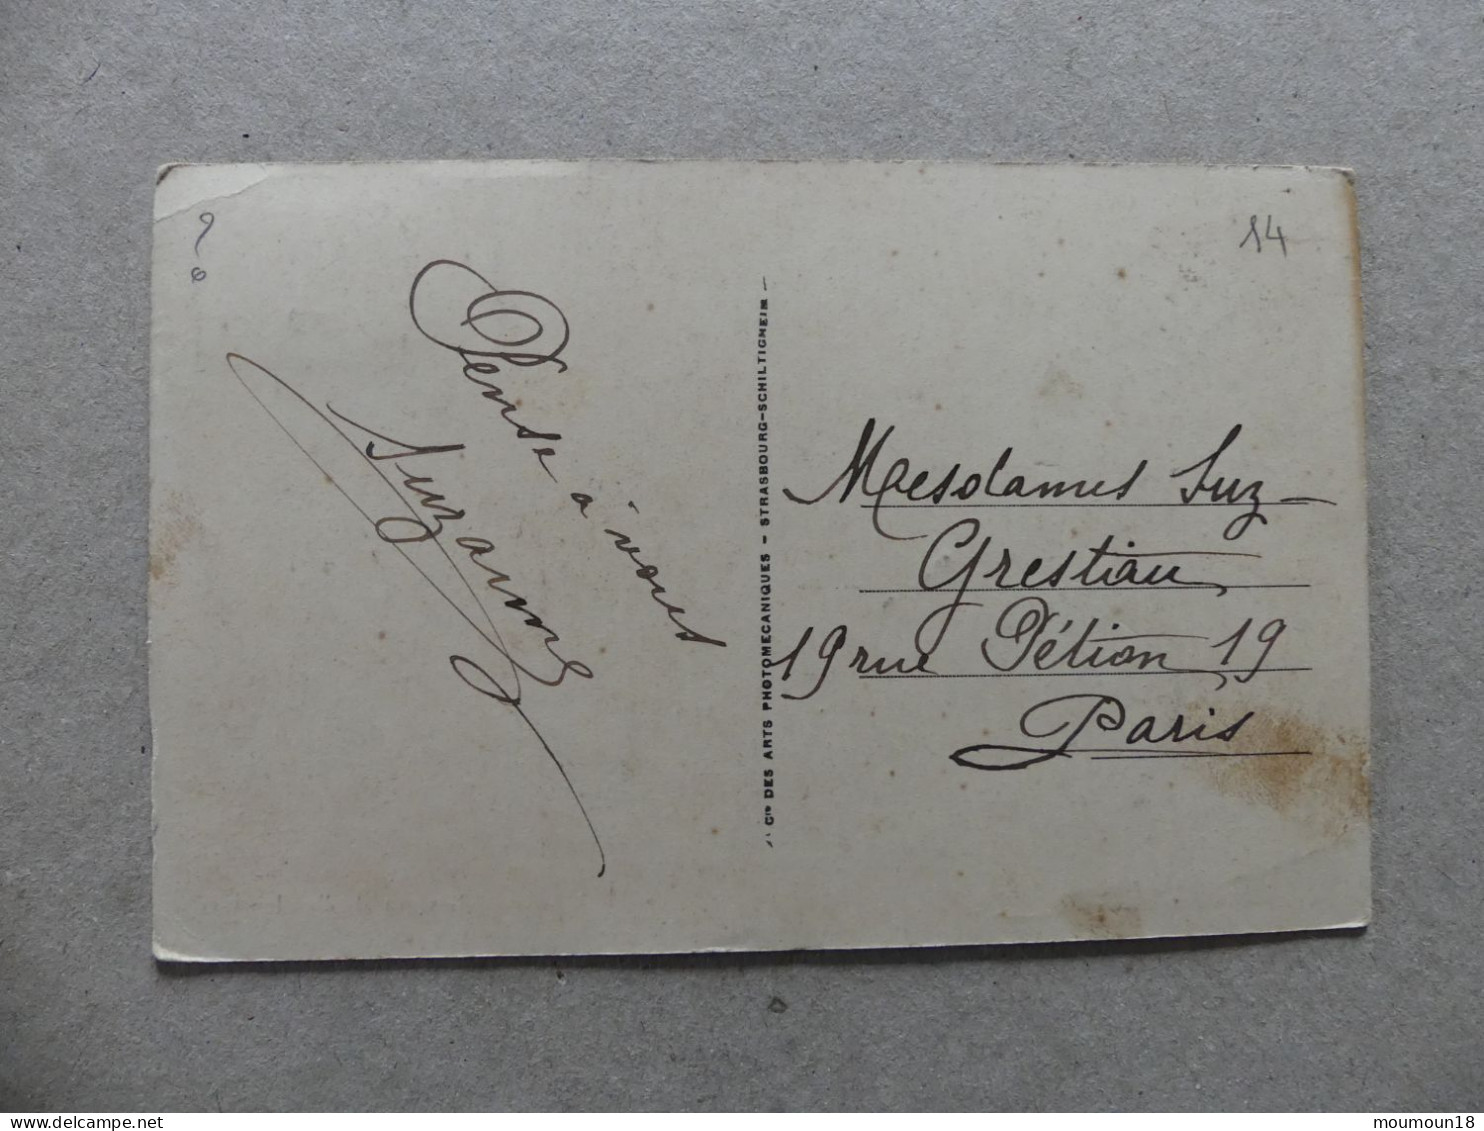 Pense à vous
Suzanne
Cie DES ARTS PHOTOMECANIQUES - STRASBOURG-SCHILTIGHEIM
14
Maesdames Suz-
Grestiau
19 rue Pétion 19
Paris
moumoun18